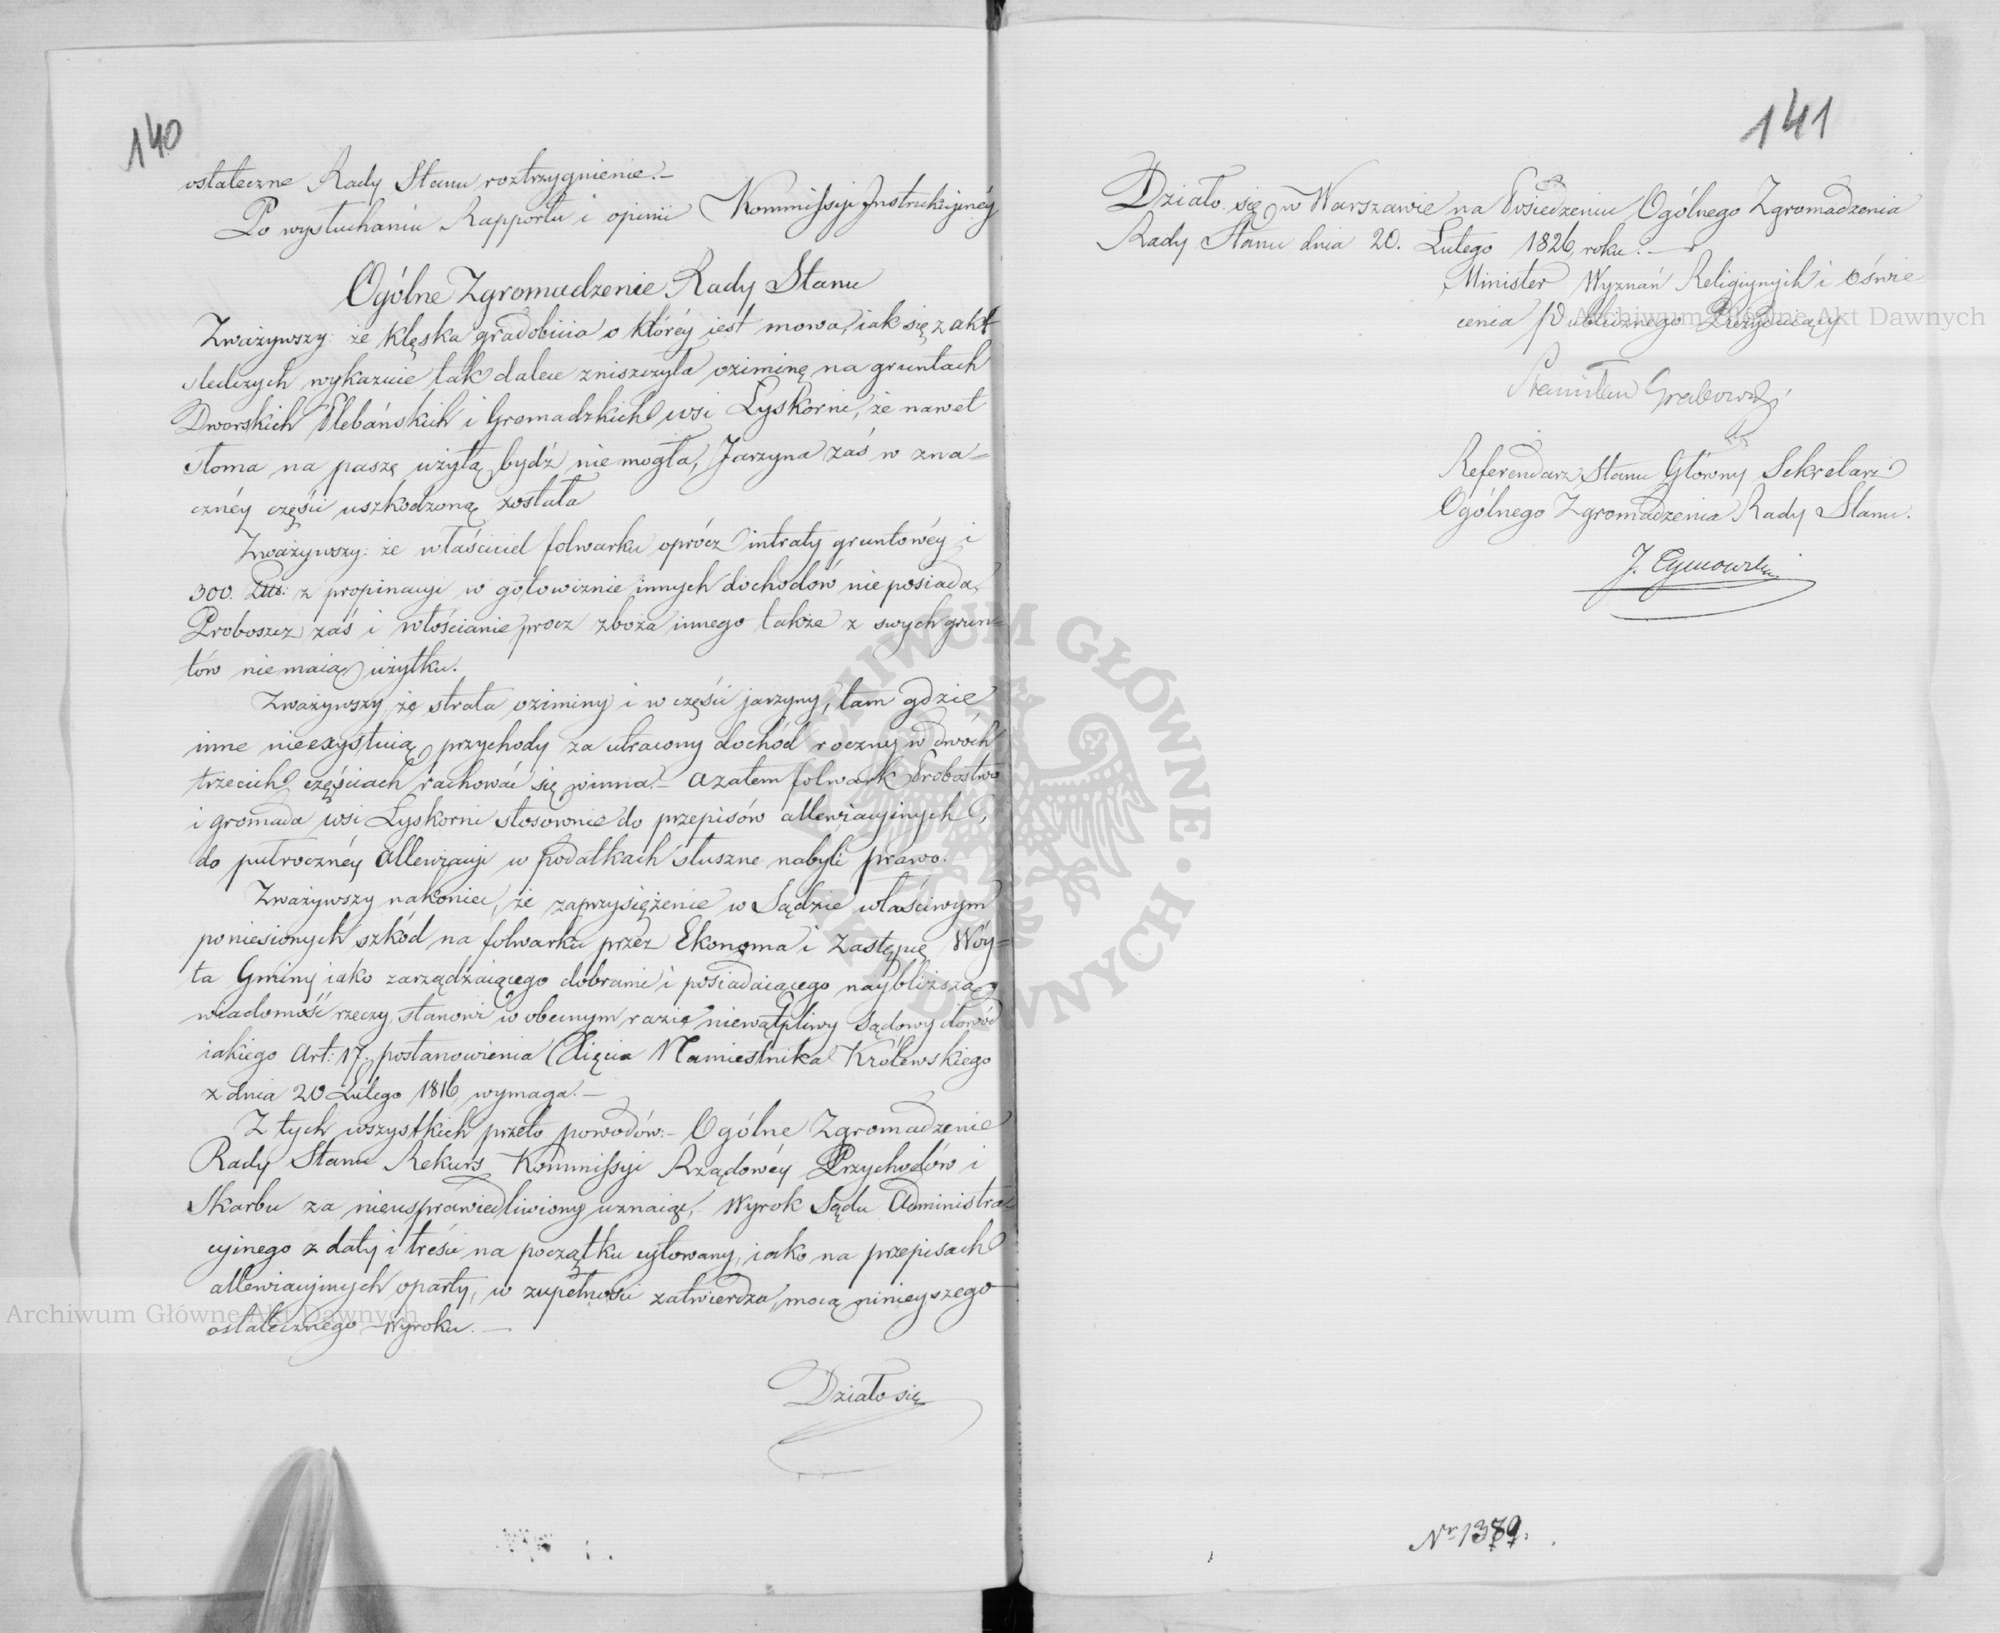 140
ostateczne Rady Stanu roztrzygnienie.—
Po wysłuchaniu Rapportu i opinii Kommissyi Instrukcyinéy
Ogólne Zgromadzenie Rady Stanu
Zważywszy: że klęska gradobicia o któréy iest mowa, iak się z akt
śledczych wykazuie tak dalece zniszczyła oziminę na gruntach
Dworskich Plebańskich i Gromadzkich wsi Łyskorni, że nawet
słoma na paszę użytą bydź nie mogła, Jarzyna zaś w zna=
cznéy części uszkodzoną została
Zważywszy: że właściciel folwarku oprócz intraty gruntowéy i
300. Złłp: z propinacyi w gotowiznie innych dochodów nie posiada,
Proboszcz zaś i włościanie prócz zboża innego także z swych grun=
tów nie maią użytku.
Zważywszy, że strata oziminy i w części jarzyny, tam gdzie
inne nieexystuią przychody za utracony dochód roczny w dwóch
trzecich częściach rachować się winna.— a zatem folwark Probostwo
i gromada wsi Łyskorni stosownie do przepisów allewiacyinych,
do półrocznéy allewiacyi w podatkach słuszne nabyli prawo.
Zważywszy nakoniec, że zaprzysiężenie w Sądzie właściwym
poniesionych szkód na folwarku przez Ekonoma i Zastępcę Wóy=
ta Gminy iako zarządzaiącego dobrami i posiadaiącego naybliższą
wiadomość rzeczy, stanowi w obecnym razie niewątpliwy sądowy dowód
iakiego Art: 17. postanowienia Xięcia Namiestnika Królewskiego
z dnia 20 Lutego 1816, wymaga.—
Z tych wszystkich przeto powodów.— Ogólne Zgromadzenie
Rady Stanu Rekurs Kommissyi Rządowéy Przychodów i
Skarbu za nieusprawiedliwiony uznaiąc, Wyrok Sądu Administra=
cyinego z daty i treści na początku cytowany, iako na przepisach
allewiacyinych oparty, w zupełności zatwierdza, mocą ninieyszego
ostatecznego Wyroku.—
Działo się
141
Działo się w Warszawie na Posiedzeniu Ogólnego Zgromadzenia
Rady Stanu dnia 20. Lutego 1826 roku.—
Minister Wyznań Religiynych i Oświe
cenia Publicznego Prezyduiący
Stanisław Grabowski
Referendarz Stanu Główny Sekretarz
Ogólnego Zgromadzenia Rady Stanu.
Nr
Archiwum Główne Akt Dawnych
Archiwum Główne Akt Dawnych
ARCHIWUM GŁÓWNE · AKT DAWNYCH